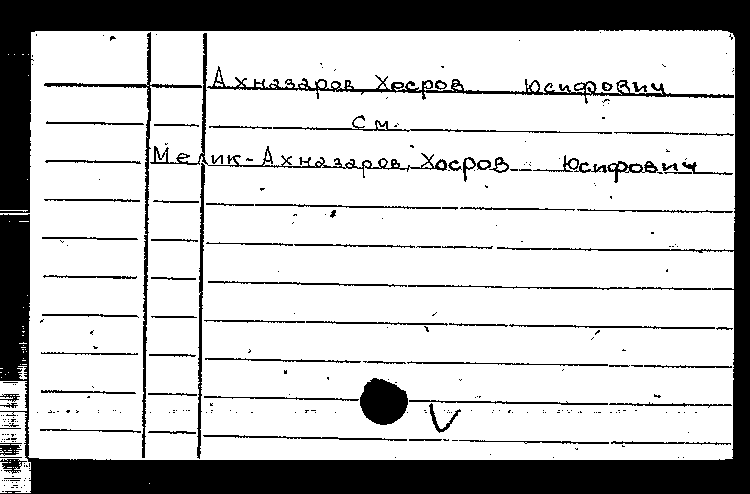 Ахназаров, Хосров Юсифович
см.
Мелик-Ахназаров, Хосров Юсифович
V